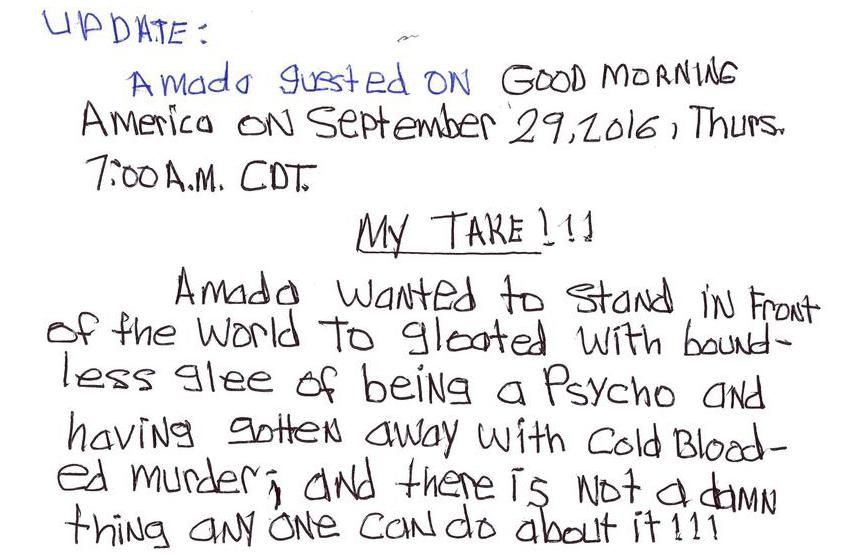 UPDATE:
Amada guested ON GOOD MORNING
America ON September 29, 2016, Thurs.
7:00 A.M. CDT.
MY TAKE!!!
Amada wanted to stand in Front
of the World To gloated with bound-
less glee of being a Psycho and
having gotten away with Cold Blood-
ed murder; and there is Not a damn
thing any one can do about it!!!